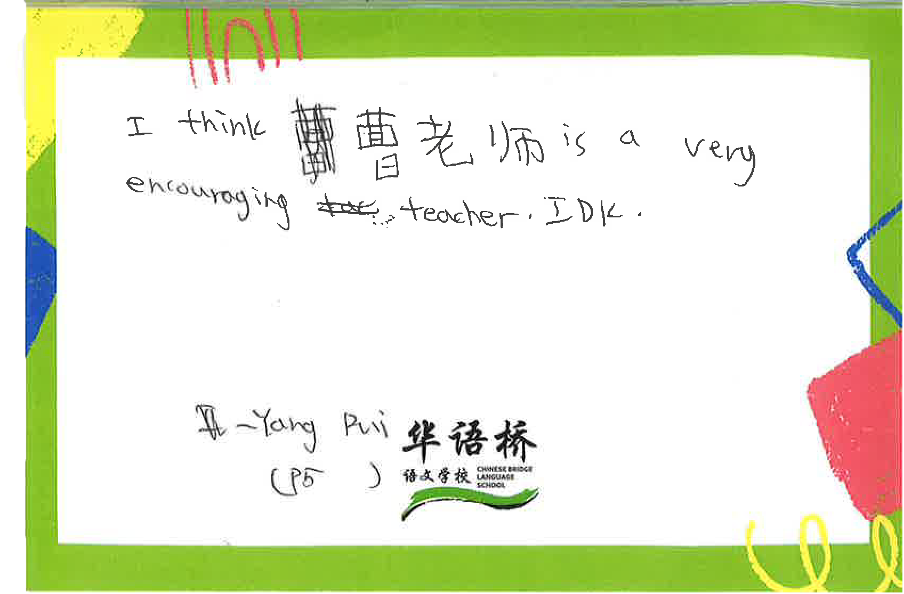 I think 曹老师 is a very
encouraging teacher. IDK.
~Yang Rui
(P5 )
华语桥
语文学校 CHINESE BRIDGE
LANGUAGE
SCHOOL